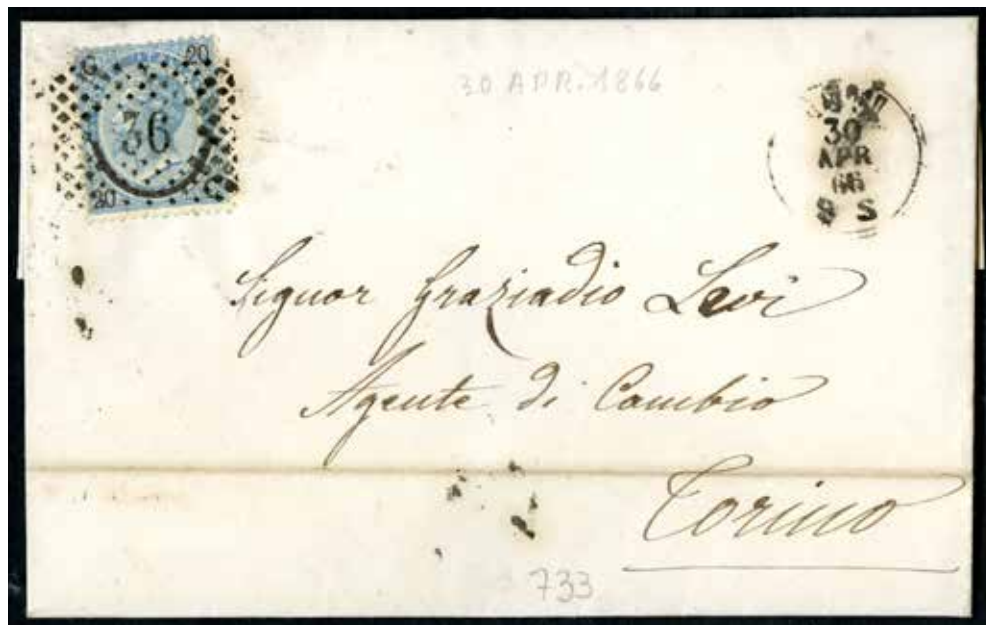 C 20
36
20 C
30 APR. 1866
30
APR
66
8 S
Signor Graziadio Levi
Agente di Cambio
Torino
733